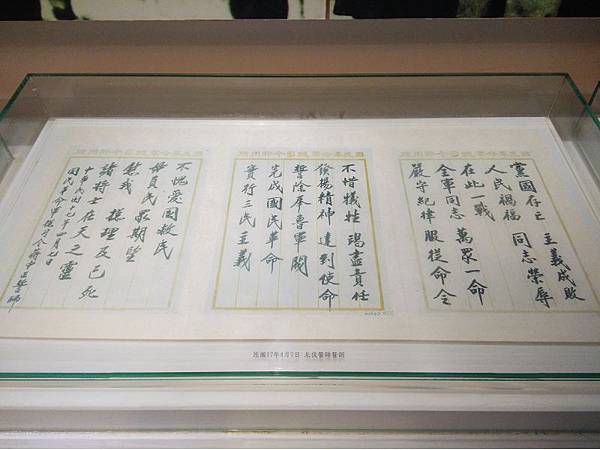 黨國存亡 主義成敗
人民禍福 同志榮辱
在此一戰
全軍同志 萬眾一命
嚴守紀律 服從命令
不惜犧牲 竭盡責任
發揚精神 達到使命
誓除奉魯軍閥
完成國民革命
實行三民主義
不愧愛國救民
毋負民衆期望
慰我 總理及已死
諸將士在天之靈
中華民國十七年四月七日
國民革命軍總司令蔣中正誓師
民國17年4月7日 北伐誓師誓詞